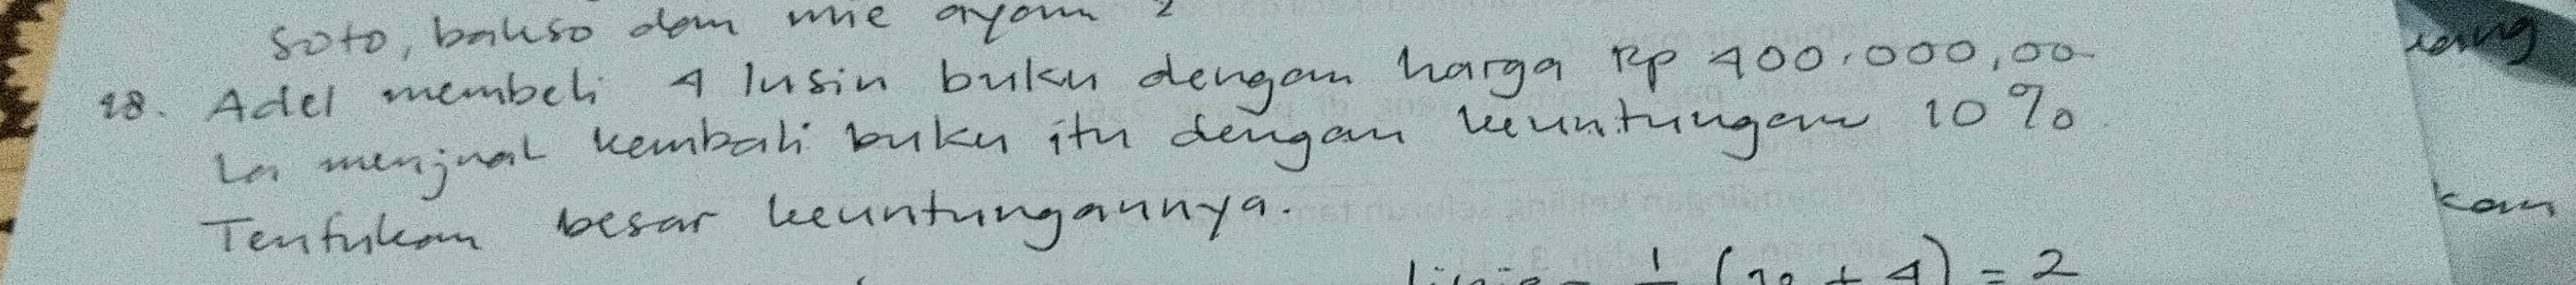 soto, bakso dan mie ayam ?
18. Adel membeli 4 lusin buku dengan harga Rp 400.000,00
Ia menjual kembali buku itu dengan keuntungan 10%.
Tentukan besar keuntungannya.
kan
(20 + 4) = 2